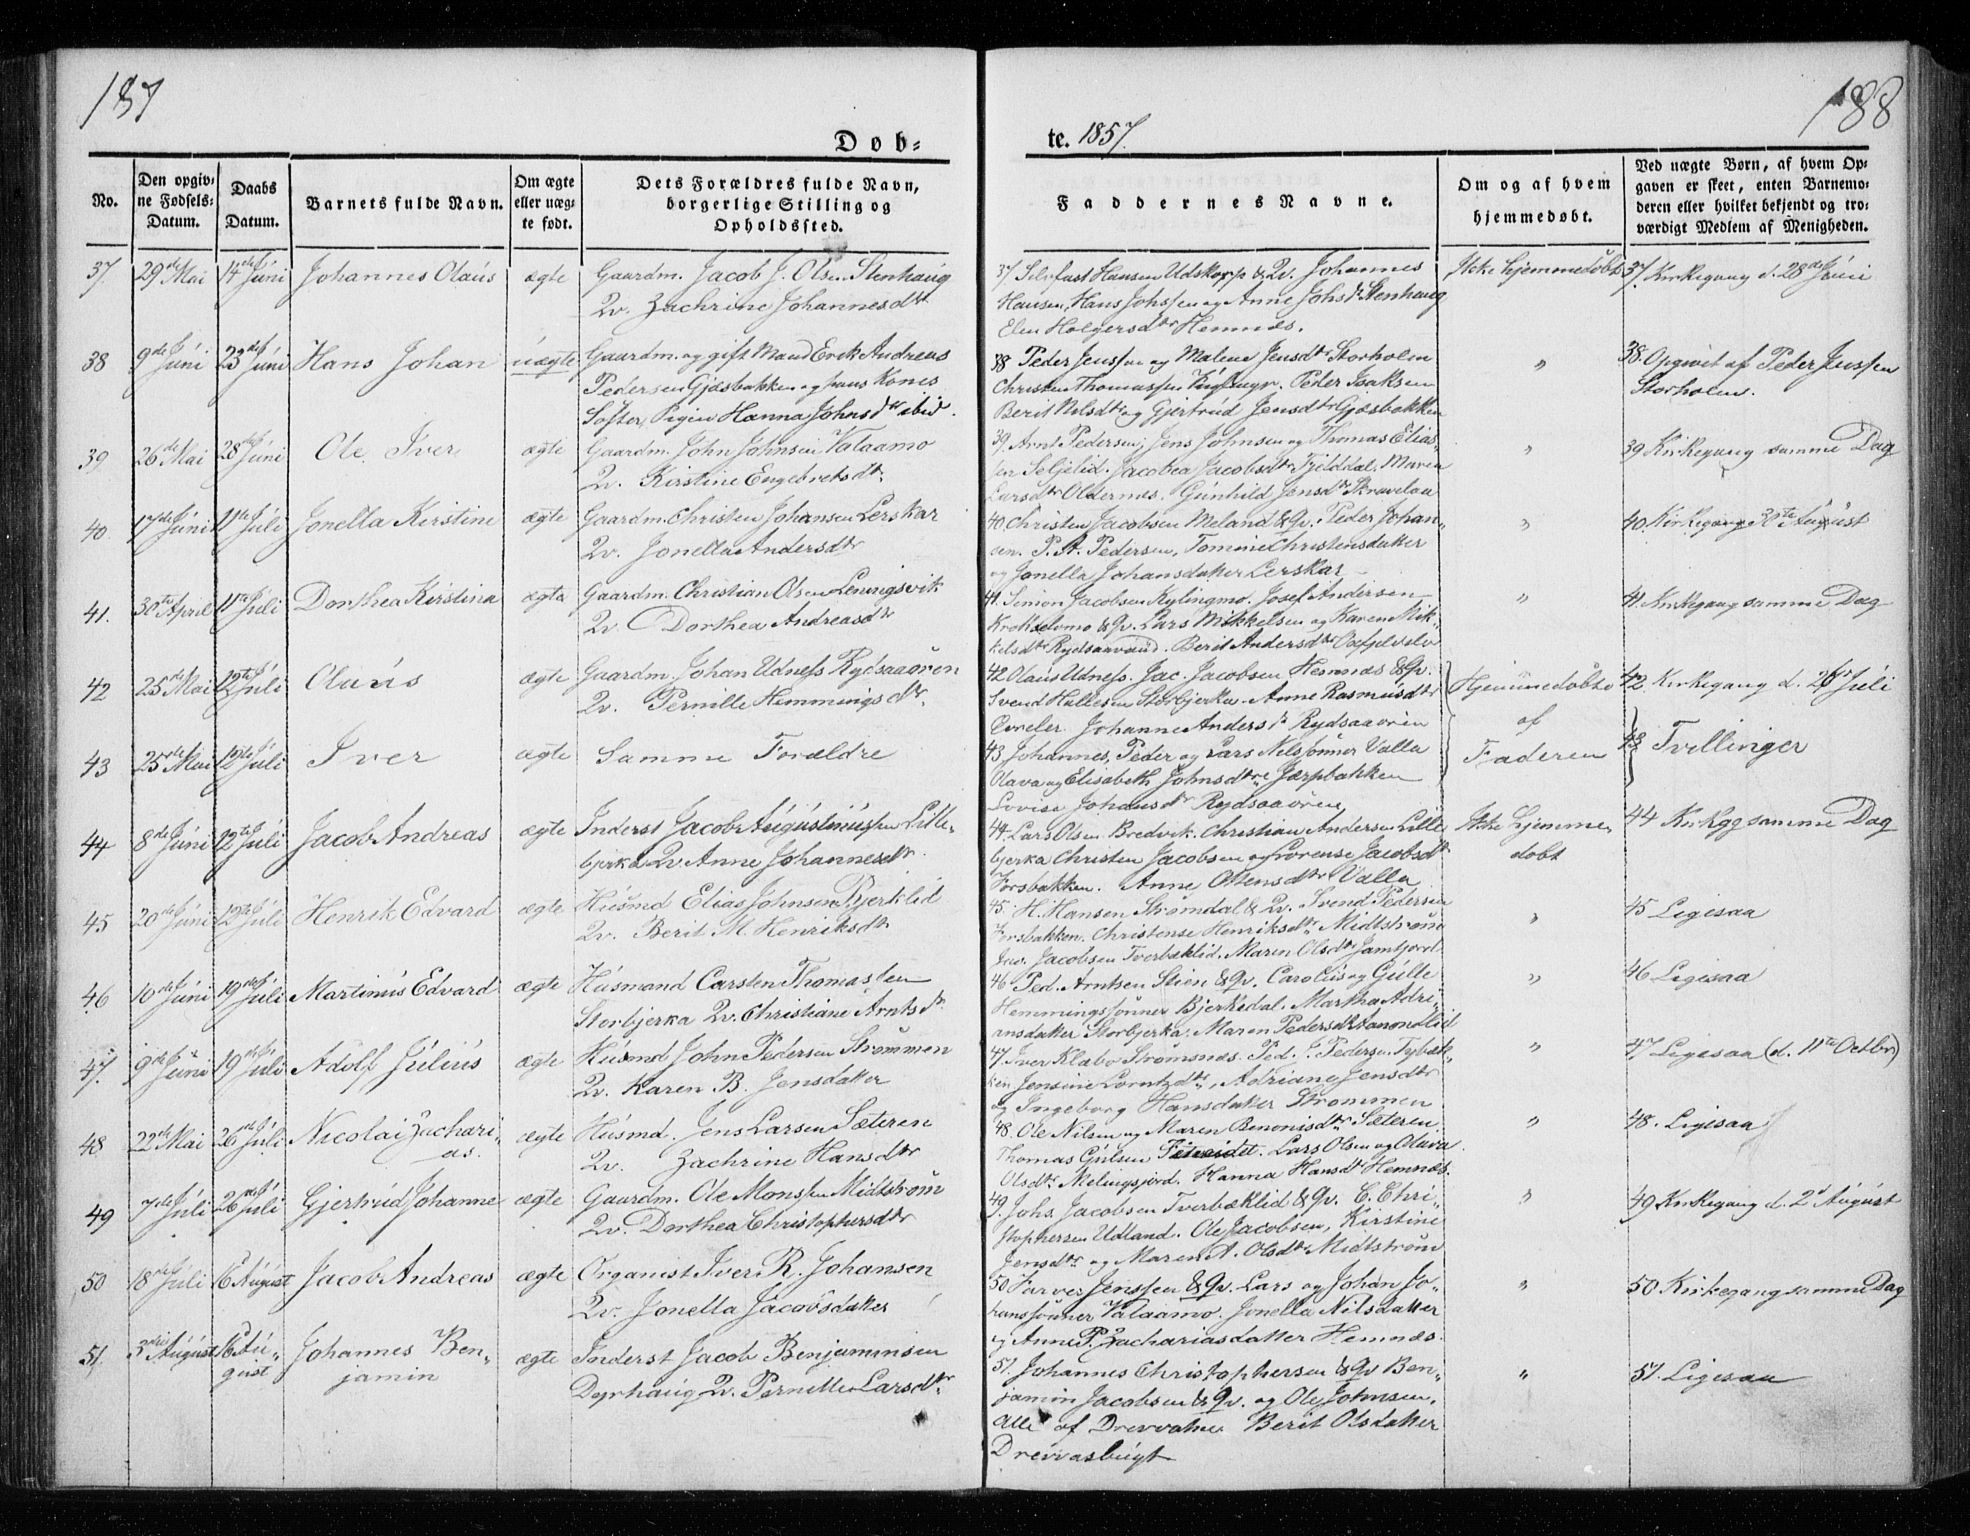 187
188
Døb=
te. 1857.
No.
Den opgiv=
ne Fødsels=
Datum.
Daabs
Datum.
Barnets fulde Navn.
Om ægte
eller uæg=
te født.
Dets Forældres fulde Navn,
borgerlige Stilling og
Opholdssted.
Faddernes Navne.
Om og af hvem
hjemmedøbt.
Ved uægte Børn, af hvem Op=
gaven er skeet, enten Barnemo=
deren eller hvilket bekjendt og tro=
værdigt Medlem af Menigheden.
37. 29de Mai 14de Juni Johannes Olaus ægte Gaardm. Jacob J. Olsen Stenhaug
Qv. Zachrine Johannesdtr
37 Selvfast Hansen Udskorp & Qv. Johannes
Hansen, Hans Johssen og Anne Johsdr Stenhaug
Elen Holgersdtr Hemnæs.
Ikke hjemmedøbt
37. Kirkegang d. 28de Juni
38 9de Juni 23de Juni Hans Johan uægte Gaardm. og gift Mand Erik Andreas
Pedersen Gjæsbakken og hans Kones
Søster, Pigen Hanna Johnsdtr ibid.
38 Peder Jenssen og Malene Jensdtr Storholm
Christen Thomassen Peder Isaksen
Berit Nilsdtr og Gjertrud Jensdtr Gjæsbakken
"
38. Opgivet af Peder Jenssen
Storholm.
39 26de Mai 28de Juni Ole Iver ægte Gaardm. John Johnsen Valaamo
Qv. Kirstine Engebretsdtr
39. Arnt Pedersen, Jens Johnsen og Thomas Elias=
sen Seljelid. Jacobea Jacobsdtr Fjelddal, Maren
Larsdtr Oldernæs. Gunhild Jensdtr Skravelaa
"
39 Kirkegang samme Dag
40 17de Juni 11te Juli Jonella Kirstine ægte Gaardm. Christen Johansen Lerskar
Qv. Jonella Andersdtr
40 Christen Jacobsen Meland & Qv. Peder Johan=
sen. P. A. Pedersen, Tomine Christensdatter
og Jonella Johansdatter Lerskar
"
40. Kirkegang 30te August
41. 30te April 11te Juli Dorthea Kirstina ægte Gaardm. Christian Olsen Leningsvik
Qv. Dorthea Andreasdtr
41. Simon Jacobsen Kylingmo. Josef Andersen
Krokselvmo & Qv. Lars Mikkelsen og Karen Mik=
kelsdtr Rydsaavand. Berit Andersdtr
"
41. Kirkegang samme Dag
42 25de Mai 12te Juli Olaus ægte Gaardm. Johan Udness Rydsaaøren
Qv. Pernille Hemmingsdtr
42 Olaus Udness. Jac. Jacobsen Hemnæs & Qv.
Svend Hallesen Storbjerka. Anne Rasmusdtr
Johanne Andersdr Rydsaaøren
Hjemmedøbte
af
Faderen
42 Kirkegang d. 26de Juli
43 25de Mai 12te Juli Iver ægte Samme Forældre
43 Johannes, Peder og Lars Nilssønner Valla
Olava og Elisabeth Johnsdtre Jærpbakken
Lovise Johansdtr Rydsaaøren
43 Tvillinger
44 8de Juni 12te Juli Jacob Andreas ægte Inderst Jacob Augustinussen Lille=
bjerka Qv. Anne Johannesdtr
44. Lars Olsen Bredvik. Christian Andersen Lille
bjerka Christen Jacobsen og Lorense Jacobsdtr
Forsbakken. Anne Ottensdtr Valla
Ikke hjemme=
døbt
44 Kirkgg samme Dag
45 20de Juni 12te Juli Henrik Edvard ægte Husmd Elias Johnsen Bjerklid
Qv. Berit M. Henriksdtr
45. H. Hansen Strømdal & Qv. Svend Pedersen
Forsbakken. Christense Henriksdtr Midtstrøm
Jac. Jacobsen Tverbæklid. Maren Olsdtr Jamtjord
"
45 Ligesaa
46 10de Juni 19de Juli Martinus Edvard ægte Husmand Carsten Thomassen
Storbjerka Qv. Christiane Arntsdr
46 Ped. Arntsen Stien & Qv. Carolius og Gulle
Hemmingssønner Bjerkedal. Martha Adri=
ansdatter Storbjerka. Maren Pedersdtr
"
46 Ligesaa
47. 9de Juni 19de Juli Adolf Julius ægte Husmd John Pedersen Strømmen
Qv. Karen B. Jensdatter
47 Iver Klæbo Strømsnæs. Ped. J. Pedersen Tybæk=
ken Jensine Lorntzdtr, Adriane Jensdtr
og Ingeborg Hansdatter Strømmen
"
47 Ligesaa (d. 11te Octbr)
48 22de Mai 26de Juli Nicolai Zachari=
as. ægte Husmd. Jens Larsen Sæteren
Qv. Zachrine Hansdtr
48. Ole Nilsen og Maren Benonisdtr Sæteren.
Thomas Gullsen Lars Olsen og Olava
Olsdtr Melingsjord. Hanna Hansdtr Hemnæs.
"
48. Ligesaa
49 7de Juli 26de Juli Gjertrud Johanne ægte Gaardm. Ole Monssen Midtstrøm
Qv. Dorthea Christophersdtr
49. Johs. Jacobsen Tverbæklid & Qv. C. Chri=
stophersen Udland. Ole Jacobsen, Kirstine
Jensdtr og Maren A. Olsdtr Midtstrøm
"
49 Kirkegang d. 2d August
50 18de Juli 16 August Jacob Andreas ægte Organist Iver R. Johansen
Qv. Jonella Jacobsdatter
50 Farver Jenssen & Qv. Lars og Johan Jo=
hanssønner Valaamo. Jonella Nilsdatter
og Anne P. Zachariasdatter Hemnæs.
"
50 Kirkegang samme Dag
51. 3die August 16 Au=
gust Johannes Ben=
jamin ægte Inderst Jacob Benjaminsen
Dyrhaug Qv. Pernille Larsdtr
51 Johannes Christophersen & Qv. Ben=
jamin Jacobsen & Qv. og Ole Johnsen,
alle af Drevvatne Berit Olsdatter
Drevvasbugt
"
51. Ligesaa